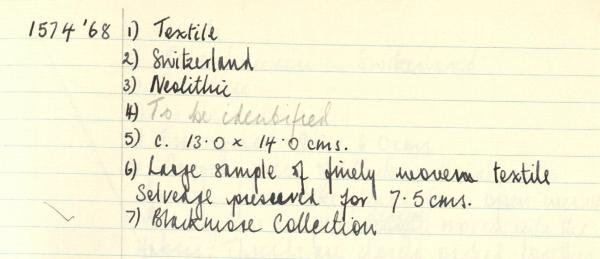 1574 '68 1) Textile
2) Switzerland
3) Neolithic
4) To be identified
5) c. 13.0 x 14.0 cms.
6) Large sample of finely woven textile
Selvedge preserved for 7.5 cms.
7) Blackmore Collection